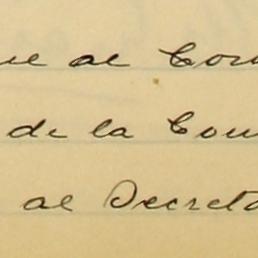 ue al Com
de la Com
al Decreto